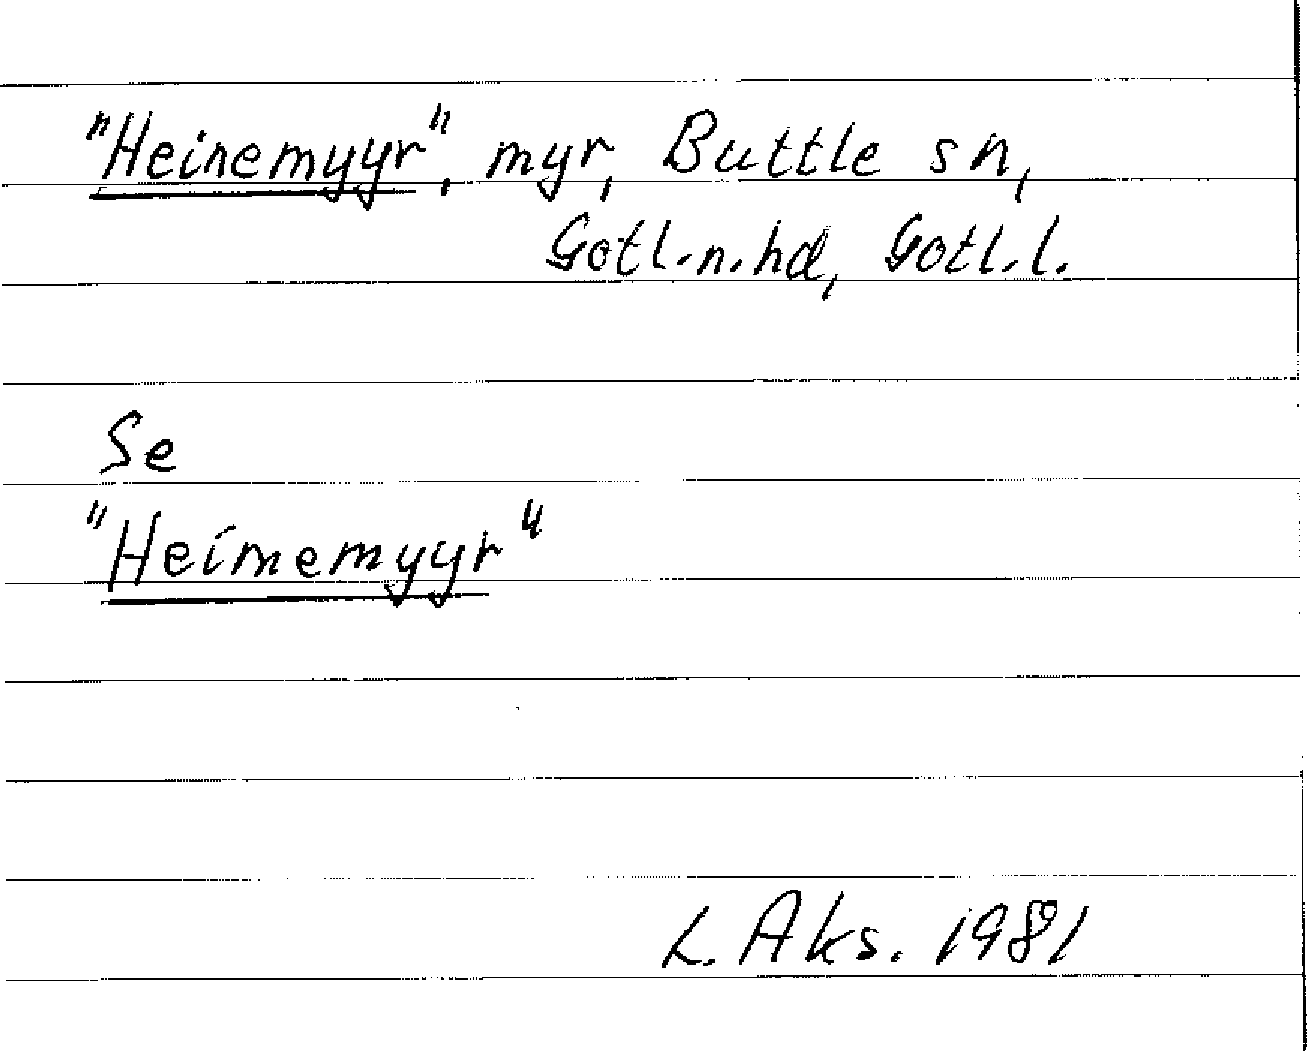 "Heinemyyr", myr, Buttle sn,
Gotl.n.hd, Gotl.l.
Se
"Heimemyyr"
L. Aks. 1981